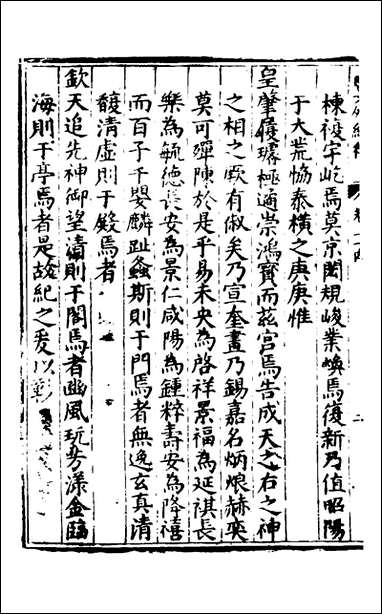 棟複宇屹焉莫京閎規峻業煥焉復新乃值昭陽
于大荒協泰橫之庚庚惟
皇肇履璿極適崇鴻寶而茲宮焉告成天之右之神
之相之厥有俶矣乃宣奎畫乃錫嘉名炳烺赫奕
莫可殫陳於是乎易未央為啓祥景福為延祺長
樂為毓德長安為景仁咸陽為鍾粹壽安為降禧
而百子千嬰麟趾螽斯則于門焉者無逸玄真清
馥清虛則于殿焉者
欽天追先神御望清則于閣焉者豳風玩芳漾金臨
海則于亭焉者是故紀之爰以彰